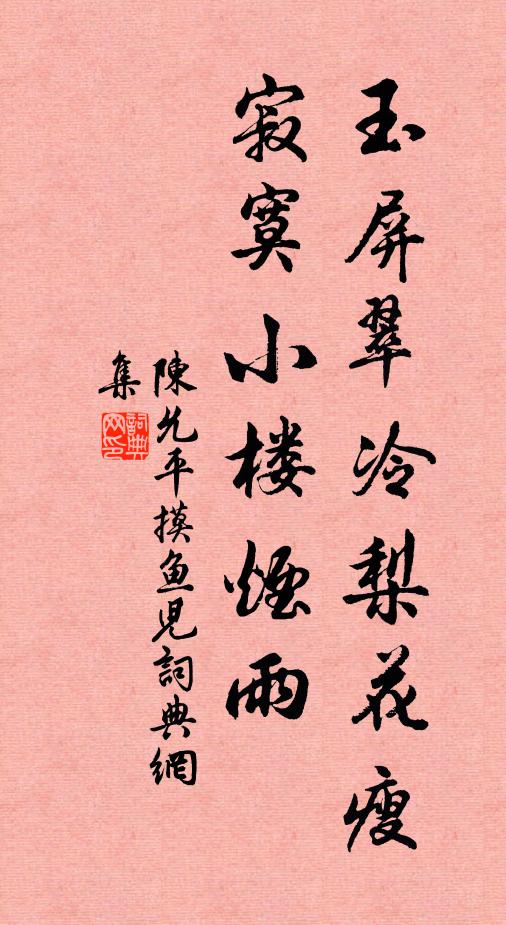 玉屏翠冷梨花瘦
寂寞小楼煙雨
陳允平摸鱼児詞典網
集
詞典
网印